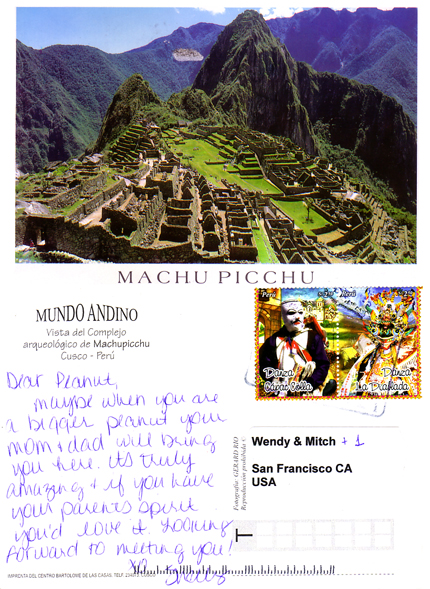 MACHU PICCHU
MUNDO ANDINO
Vista del Complejo
arqueológico de Machupicchu
Cusco - Perú
Perú
Perú
Danza
Danza
La Diablada
Dear Peanut,
maybe when you are
a bigger peanut your
mom & dad will bring
you here. It's truly
amazing & if you have
your parents spirit
you'd love it. Looking
forward to meeting you!
XO
Fotografía: GERARD RIO
Reproducción prohibida ©
Wendy & Mitch + 1
San Francisco CA
USA
IMPRENTA DEL CENTRO BARTOLOME DE LAS CASAS. TELF.
CUSCO